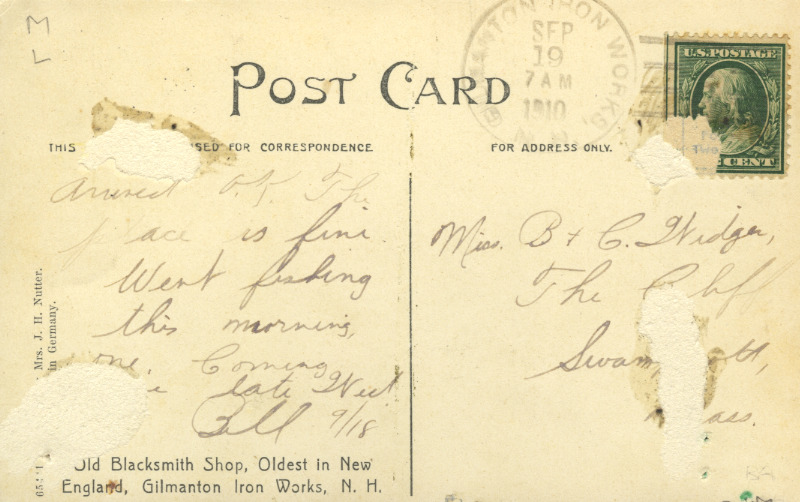 M
L
POST CARD
GILMANTON IRON WORKS,
SEP
19
7 AM
1910
N.H.
U.S. POSTAGE
CENT
THIS USED FOR CORRESPONDENCE
FOR ADDRESS ONLY.
Arrived O.K. The
place is fine
Went fishing
this morning,
Coming
late Wed
Bill 9/18
Miss. B + C. Widger,
The Clif
Swam ott,
Mass.
Mrs. J. H. Nutter.
in Germany.
Old Blacksmith Shop, Oldest in New
England, Gilmanton Iron Works, N. H.